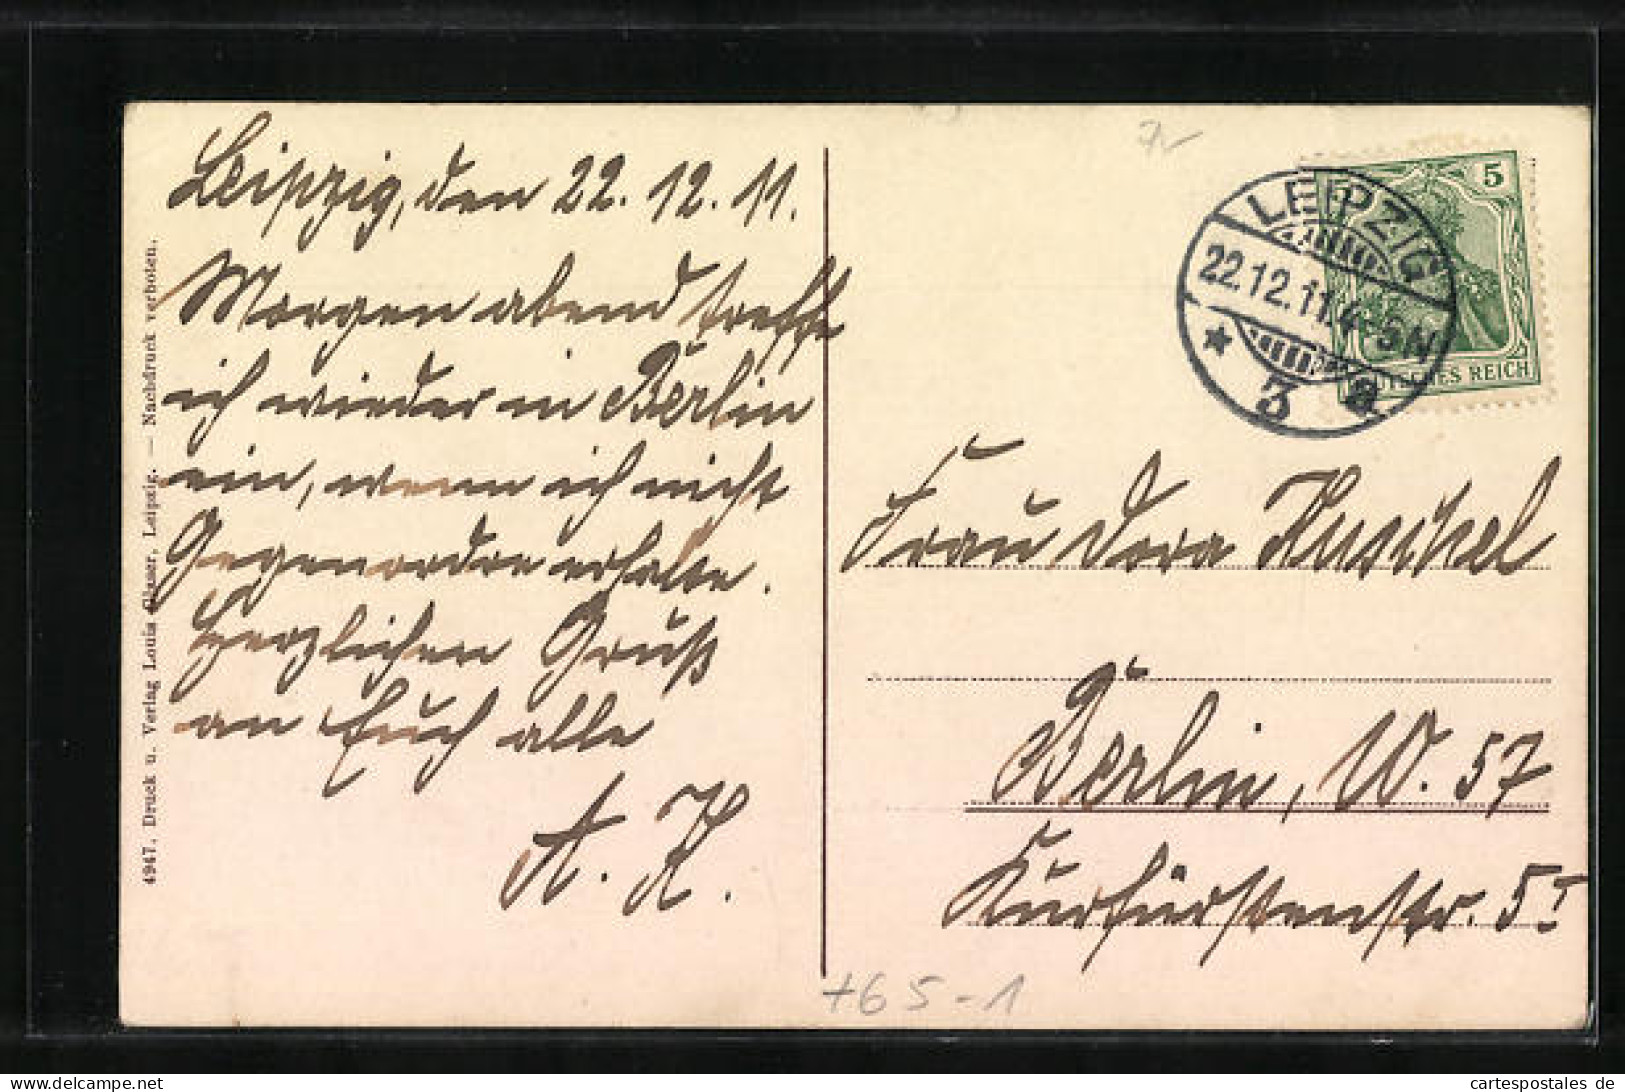 Leipzig, den 22. 12. 11.
Morgen abend treffe
ich wieder in Berlin
ein, wenn ich nicht
Gegenordre erhalte.
Herzlichen Gruß
an Euch alle
A. K.
4947. Druck u. Verlag Louis Glaser, Leipzig. — Nachdruck verboten.
5
DEUTSCHES REICH
LEIPZIG
22.12.11. 4-5N
★ 3 a
Frau Dora Kuschel
Berlin, W. 57
Kurfürstenstr. 5 I
+65-1
cartespostales de